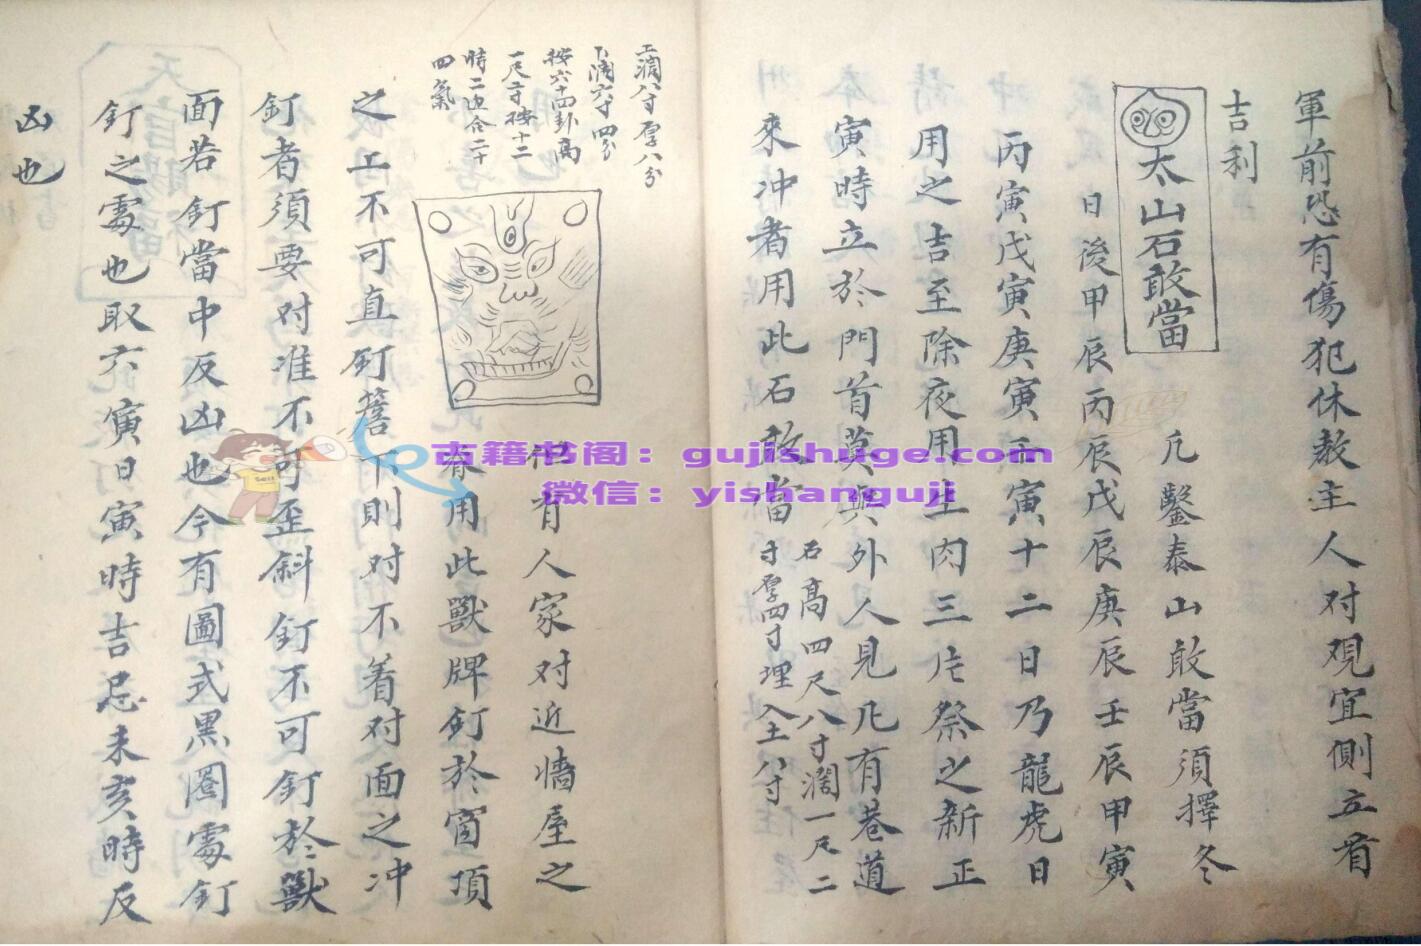 軍前恐有傷犯休教主人对观宜側立看
吉利
太山石敢當
凡鑿泰山敢當須擇冬
日後甲辰丙辰戊辰庚辰壬辰甲寅
丙寅戊寅庚寅壬寅十二日乃龍虎日
用之吉至除夜用生肉三片祭之新正
寅時立於門首莫與外人見凡有巷道
來冲者用此石敢當
石高四尺八寸濶一尺二
寸厚四寸埋入土八寸
工濶八寸厚八分
下濶六寸四分
按六十四卦高
一尺二寸按十二
時二边合二十
四氣
但有人家对近墙屋之
脊用此獸牌釘於窗頂
之上不可直釘簷下則对不着对面之冲
釘者須要对准不可歪斜釘不可釘於獸
面若釘當中反凶也今有圖式黑圈處釘
釘之處也取六寅日寅時吉忌未亥時反
凶也
古籍书阁：gujishuge.com
微信：yishanguji